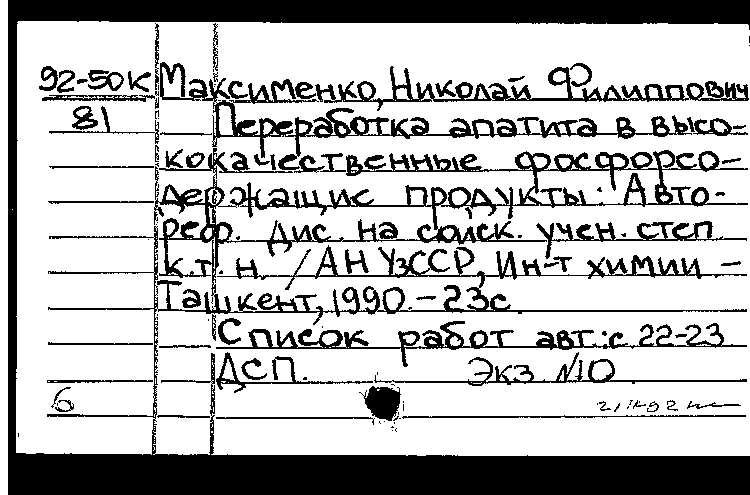 92-50К Максименко, Николай Филиппович
81 Переработка апатита в высо-
кокачественные фосфорсо-
держащие продукты: Авто-
реф. дис. на соиск. учен. степ
к.т.н. / АН УзССР, Ин-т химии. -
Ташкент, 1990. - 23с.
Список работ авт.: с. 22-23
ДСП. Экз. №10
6